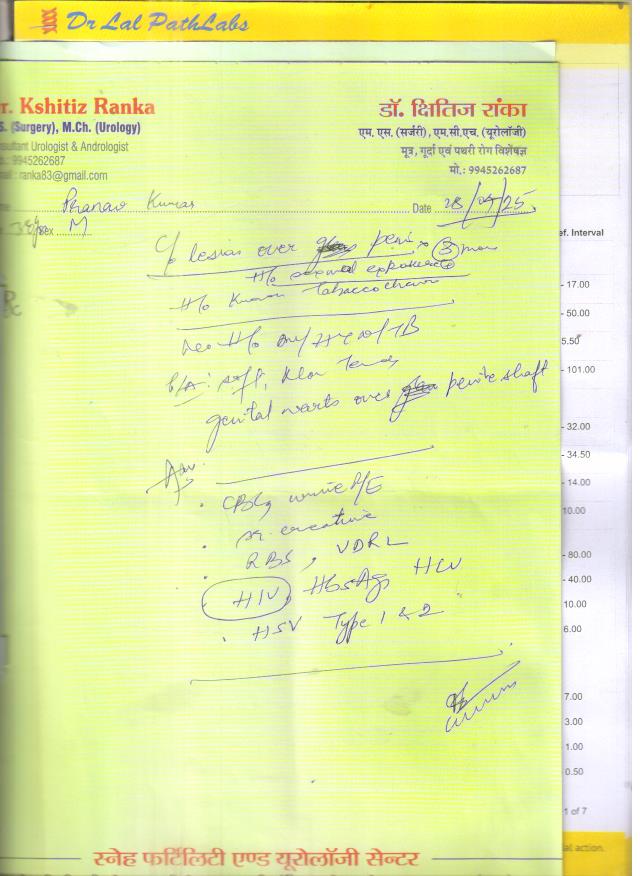 Dr Lal PathLabs
r. Kshitiz Ranka
S. (Surgery), M.Ch. (Urology)
nsultant Urologist & Andrologist
.: 9945262687
ail : ranka83@gmail.com
डॉ. क्षितिज रांका
एम. एस. (सर्जरी), एम.सी.एच. (यूरोलॉजी)
मूत्र, गूर्दा एवं पथरी रोग विशेषज्ञ
मो.: 9945262687
me Pranav Kumar Date 28/04/25
38y sex M
C/o lesias over peni x 3 mon
H/o sexual exposure
H/o Known tobacco chewer
No H/o DM/HTN/TB
P/A: soft, Non Tender
genital warts over penile shaft
Adv.
CBC, urine R/E
sr. creatinine
RBS, VDRL
HIV, HbsAg, HCV
HSV Type 1 & 2
स्नेह फर्टिलिटी एण्ड यूरोलॉजी सेन्टर
ef. Interval
- 17.00
- 50.00
5.50
- 101.00
- 32.00
- 34.50
- 14.00
10.00
- 80.00
- 40.00
10.00
6.00
7.00
3.00
1.00
0.50
1 of 7
al action.